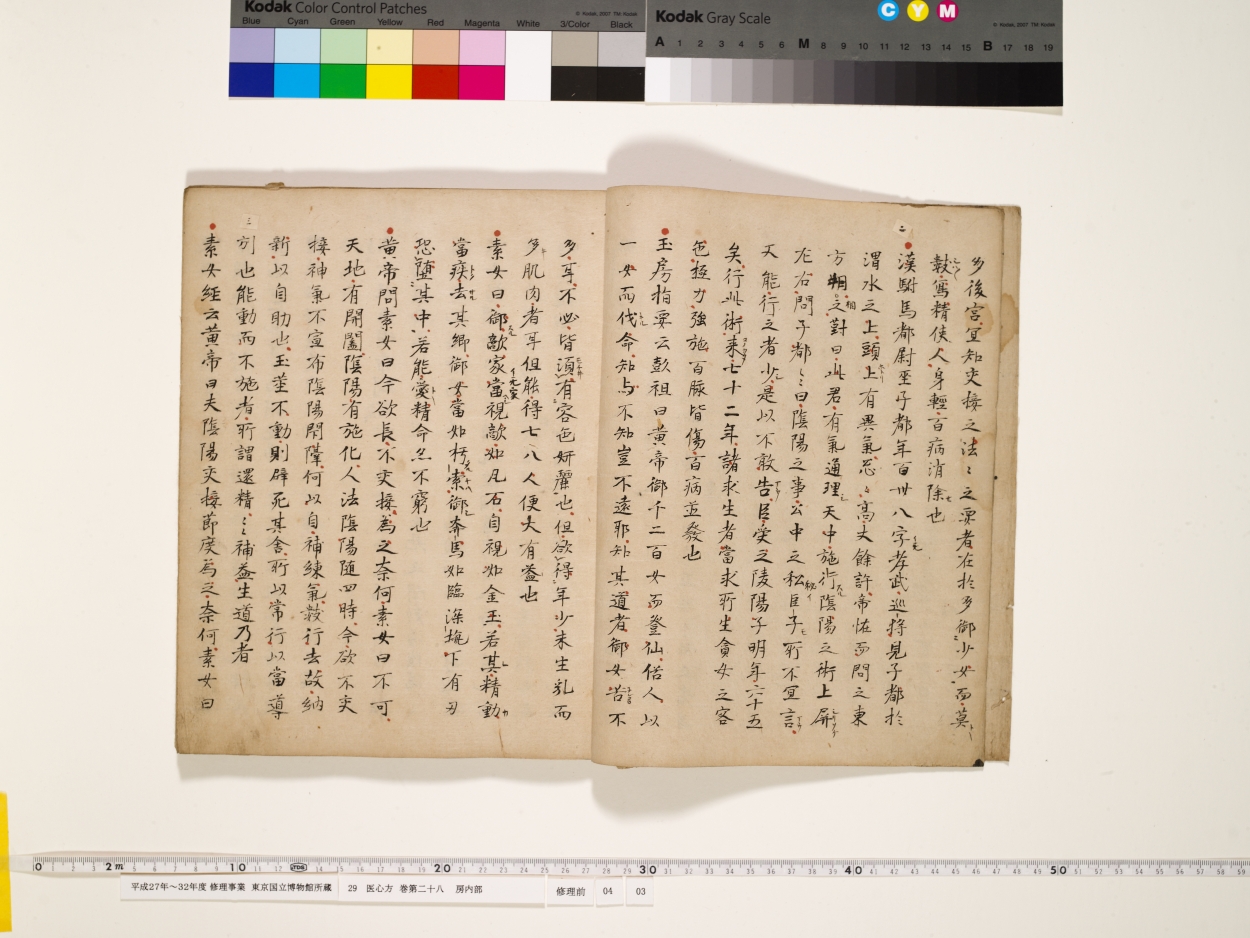 Kodak Color Control Patches
© Kodak, 2007 TM: Kodak
Blue Cyan Green Yellow Red Magenta White 3/Color Black
Kodak Gray Scale
C Y M
© Kodak, 2007 TM: Kodak
A 1 2 3 4 5 6 M 8 9 10 11 12 13 14 15 B 17 18 19
多後宮宜知交接之法〻之要者在於多御少女而莫
數寫精使人身輕百病消除也
二
漢駙馬都尉巫子都年百卅八字孝武巡狩見子都於
渭水之上頭上有異氣忩〻高丈餘許帝恠而問之東
方朔〻之對曰此君有氣通理天中施行陰陽之術上屏
左右問子都〻曰陰陽之事公中之私臣子所不宜言
又能行之者少是以不敢告臣受之陵陽子明年六十五
矣行此術來七十二年諸求生者當求所生貪女之容
色極力強施百脉皆傷百病並發也
玉房指要云彭祖曰黃帝御千二百女而登仙俗人以
一女而伐命知与不知豈不遠耶知其道者御女苦不
多耳不必皆須有容色妍麗也但欲得年少未生乳而
多肌肉者耳但能得七八人便大有益也
素女曰御敵家當視敵如瓦石自視如金玉若其精動
當疾去其鄉御女當如朽索御奔馬如臨深坑下有刃
恐墮其中若能愛精命亦不窮也
黃帝問素女曰今欲長不交接為之奈何素女曰不可
天地有開闔陰陽有施化人法陰陽随四時今欲不交
接神氣不宣布陰陽閇隔何以自補練氣數行去故納
新以自助也玉莖不動則辟死其舍所以常行以當導
引也能動而不施者所謂還精〻〻補益生道乃著
三
素女經云黃帝曰夫陰陽交接節度為之奈何素女曰
0 2m 10 20 30 40 50
平成27年～32年度 修理事業 東京国立博物館所蔵 29 医心方 巻第二十八 房内部 修理前 04 03